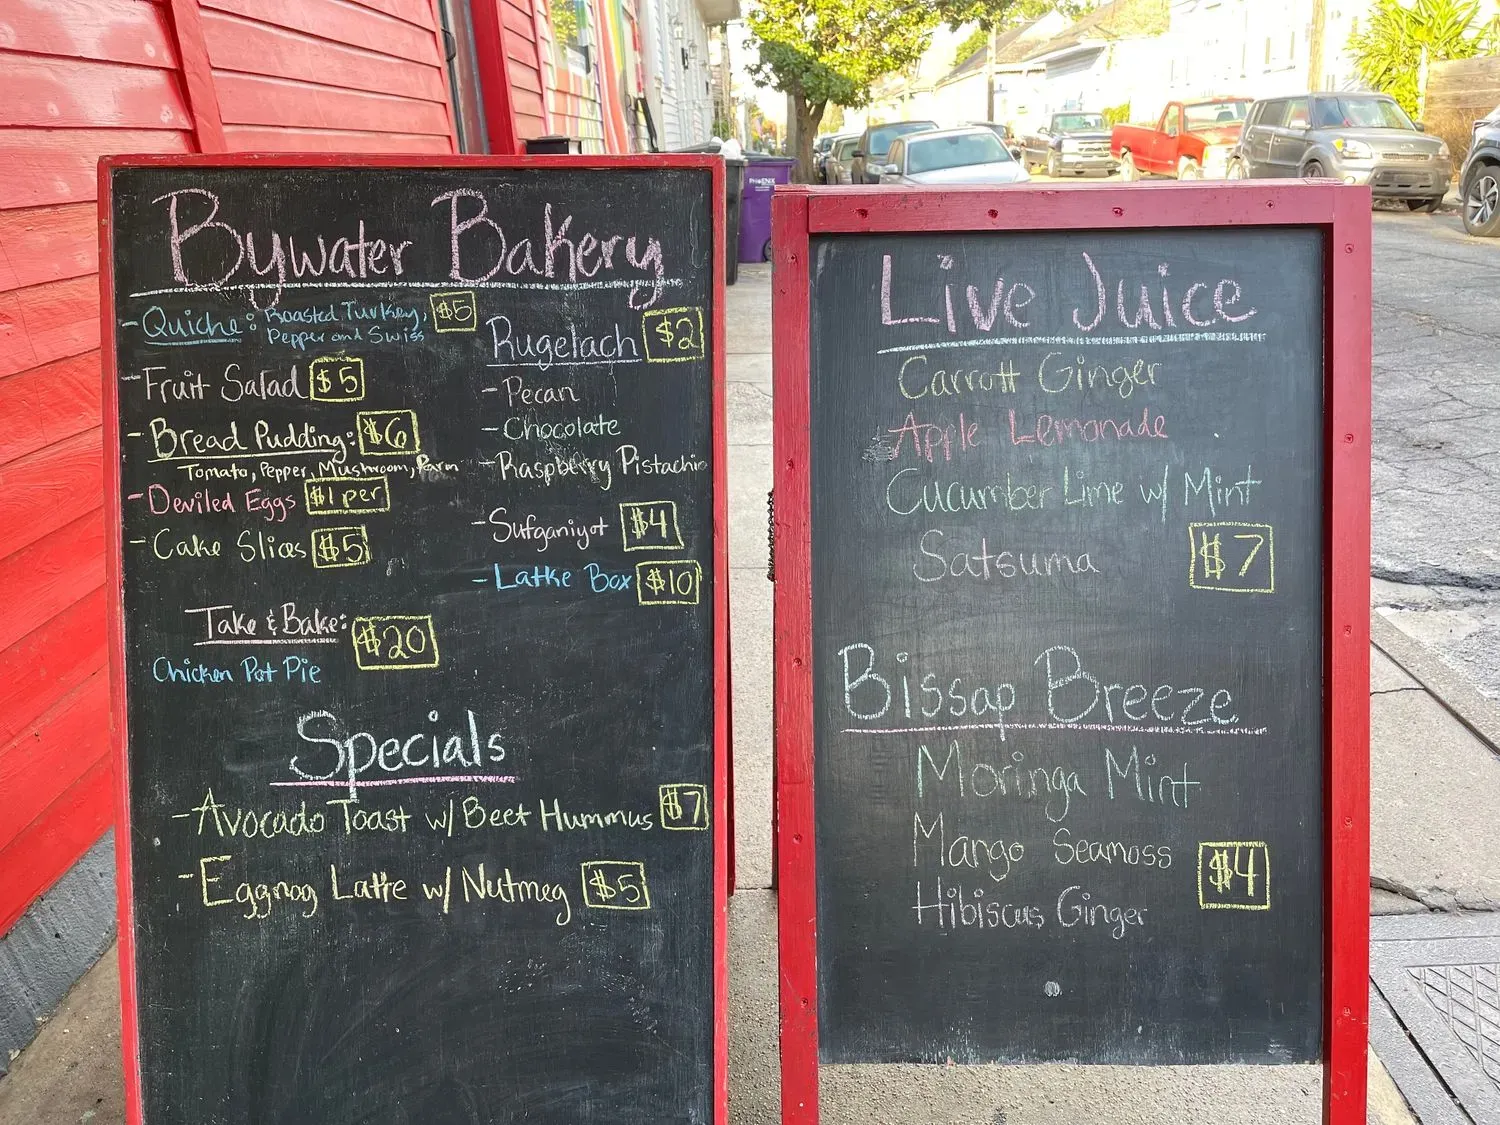 Bywater Bakery
- Quiche: Roasted Turkey, $5
Pepper and Swiss
- Fruit Salad $5
- Bread Pudding: $6
Tomato, Pepper, Mushroom, Parm
- Deviled Eggs $1 per
- Cake Slices $5
Take & Bake: $20
Chicken Pot Pie
Rugelach $2
- Pecan
- Chocolate
- Raspberry Pistachio
- Sufganiyot $4
- Latke Box $10
Specials
- Avocado Toast w/ Beet Hummus $7
- Eggnog Latte w/ Nutmeg $5
Live Juice
Carrott Ginger
Apple Lemonade
Cucumber Lime w/ Mint
Satsuma $7
Bissap Breeze
Moringa Mint
Mango Seamoss $4
Hibiscus Ginger
PHOENIX